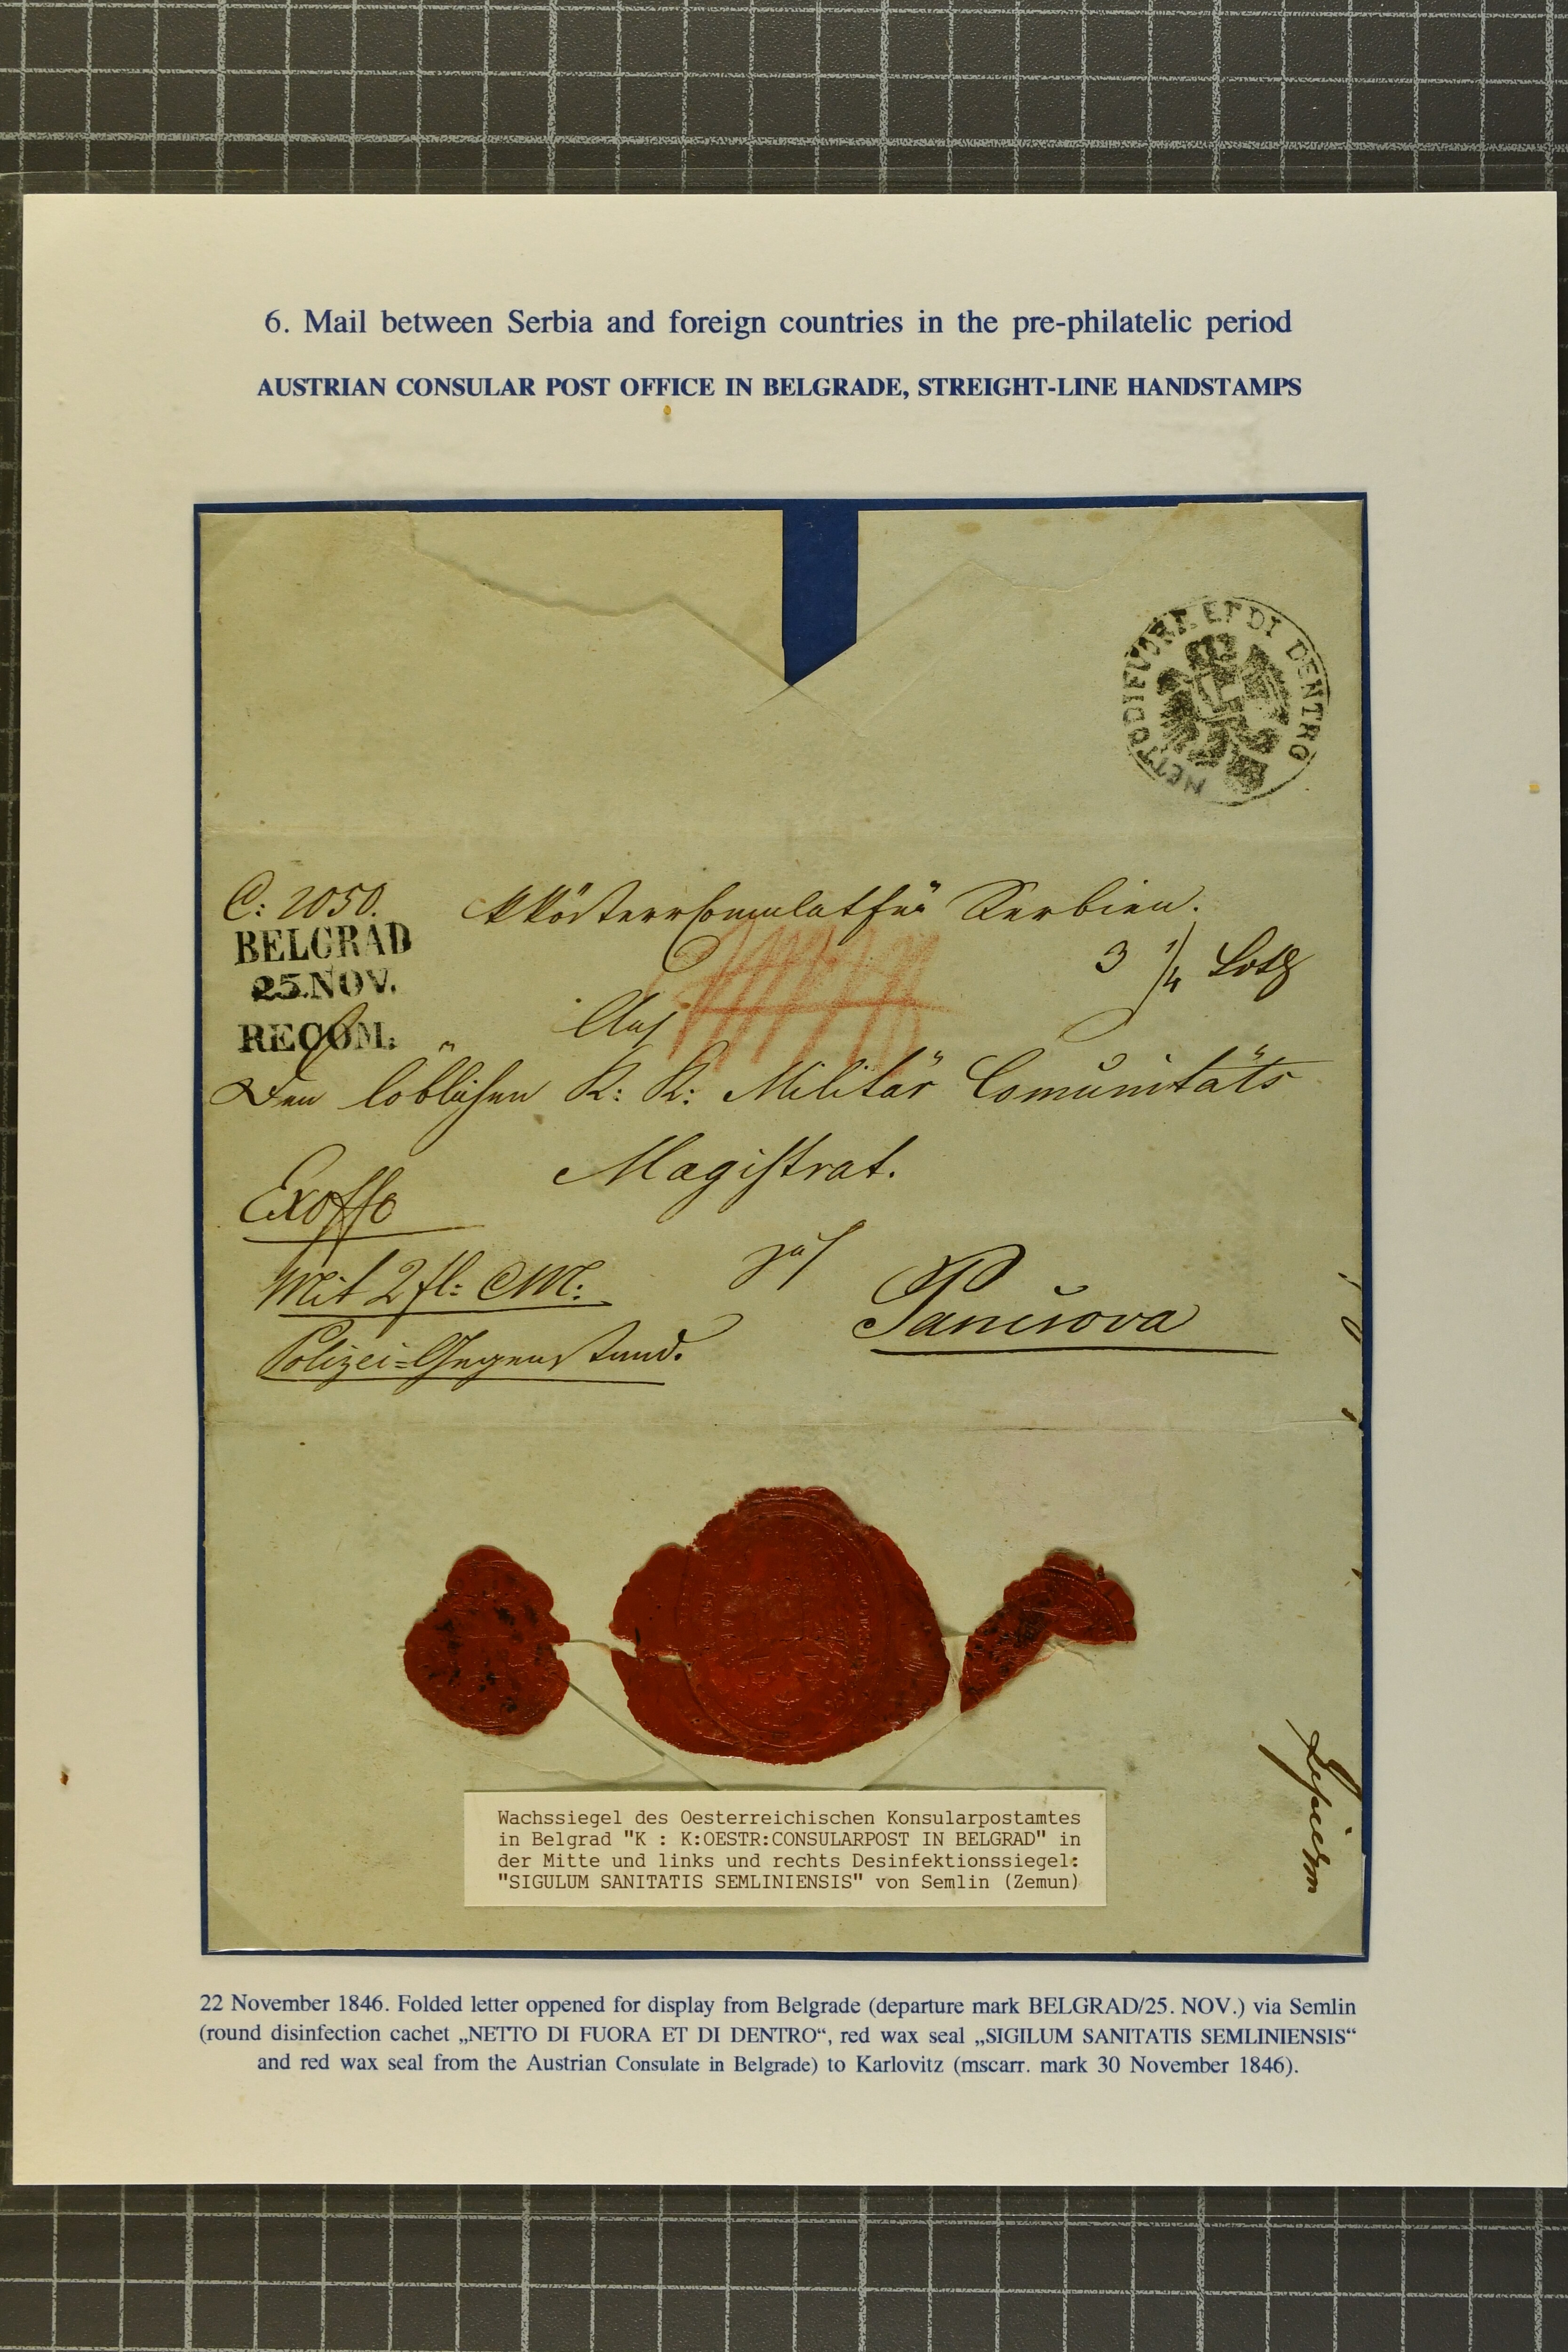 6. Mail between Serbia and foreign countries in the pre-philatelic period
AUSTRIAN CONSULAR POST OFFICE IN BELGRADE, STREIGHT-LINE HANDSTAMPS
NETTO DI FUORE ET DI DENTRO
C: 1050.
KK österr Consulat für Serbien.
BELGRAD
25.NOV.
RECOM.
3 1/4 Loth
An
Den löblichen K: K: Militär Comunitäts
Magistrat.
Exoffo
Mit 2 fl: CM:
zu
Pancsova
Polizei=Gegenstand.
Wachssiegel des Oesterreichischen Konsularpostamtes
in Belgrad "K : K:OESTR:CONSULARPOST IN BELGRAD" in
der Mitte und links und rechts Desinfektionssiegel:
"SIGULUM SANITATIS SEMLINIENSIS" von Semlin (Zemun)
22 November 1846. Folded letter oppened for display from Belgrade (departure mark BELGRAD/25. NOV.) via Semlin
(round disinfection cachet „NETTO DI FUORA ET DI DENTRO“, red wax seal „SIGILUM SANITATIS SEMLINIENSIS“
and red wax seal from the Austrian Consulate in Belgrade) to Karlovitz (mscarr. mark 30 November 1846).